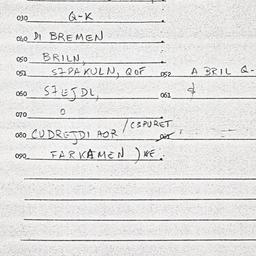 030 Q-K
040 DI BREMEN
050 BRILN,
051 SIPAKULN, QOF 052 A BRIL Q-
060 SIEJDL, 061
070 O
080 CUDREJDI AOR / CSPURET
090 FARKAMEN )